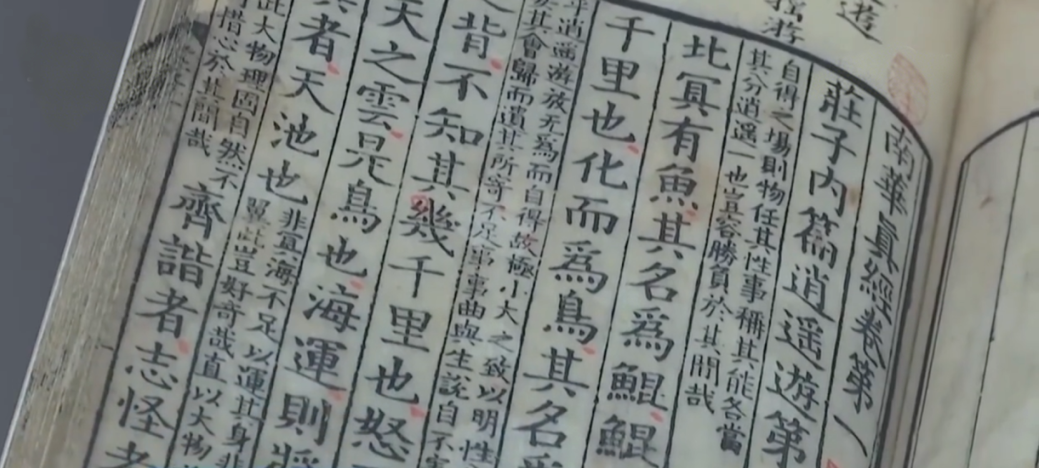 南華真經卷第一
莊子內篇逍遥遊第
自得之場則物任其性事稱其能各當
其分逍遥一也豈容勝負於其間哉
北冥有魚其名爲鯤鯤
千里也化而爲鳥其名爲
逍遥遊放無爲而自得故極小大之致以明性
其會歸而遺其所寄不足事事曲與生說自不
背不知其幾千里也怒
天之雲是鳥也海運則將
者天池也
非冥海不足以運其身非
翼此豈好奇哉直以大物
此大物理固自然不
措心於其間哉
齊諧者志怪者